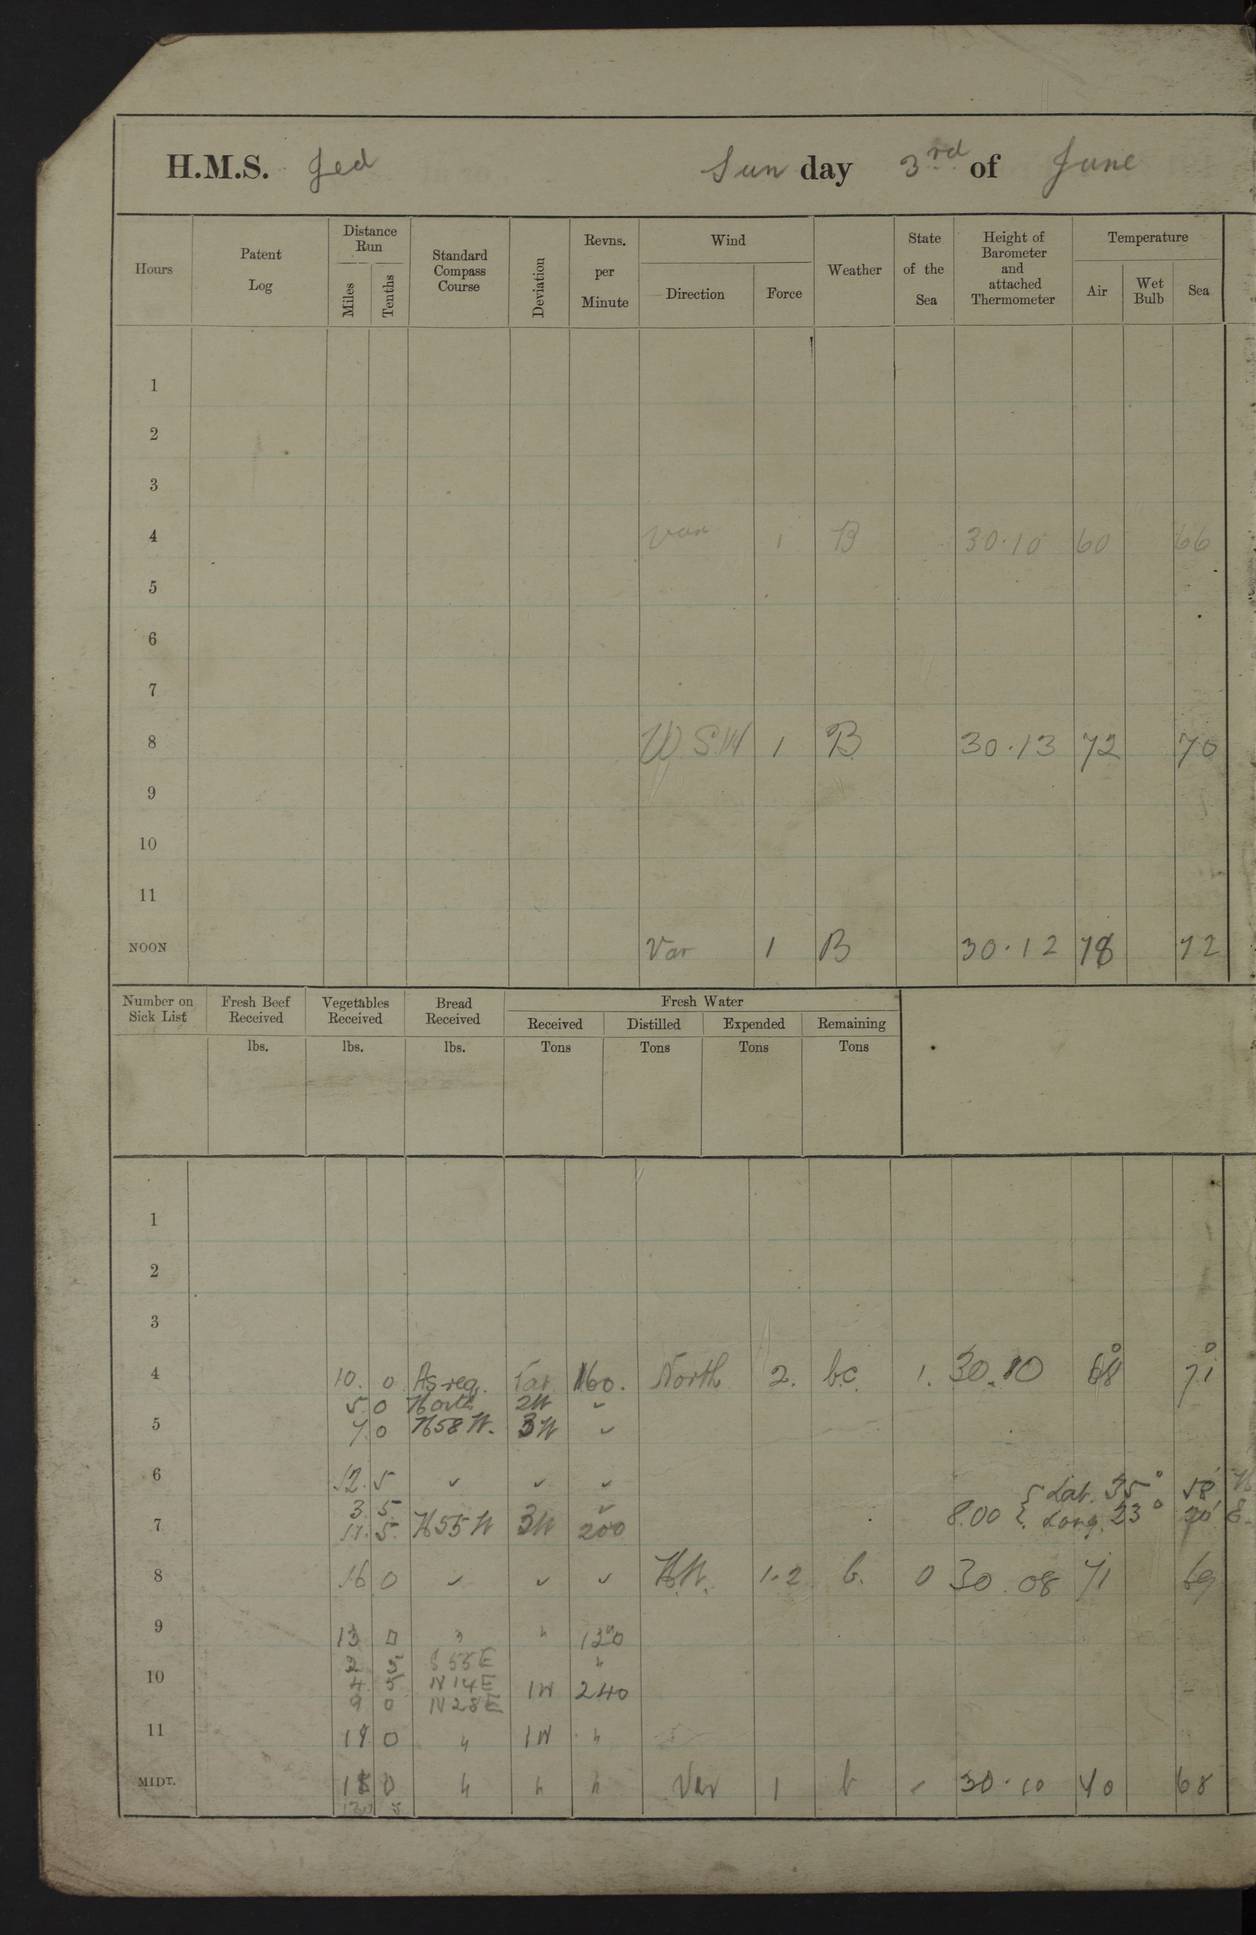 H.M.S. Jed Sunday 3rd of June
Hours Patent Log Distance Run Miles Tenths Standard Compass Course Deviation Revns. per Minute Wind Direction Force Weather State of the Sea Height of Barometer and attached Thermometer Temperature Air Wet Bulb Sea
1
2
3
4 Var 1 B 30.10 60 66
5
6
7
8 WSW 1 B 30.13 72 70
9
10
11
NOON Var 1 B 30.12 78 72
Number on Sick List Fresh Beef Received Vegetables Received Bread Received Fresh Water
Received Distilled Expended Remaining
lbs. lbs. lbs. Tons Tons Tons Tons
1
2
3
4 10. 0 As req. Var 160. North 2. bc. 1. 30.10 68° 71°
5. 0 North 2W ✓
5 7. 0 N58W. 3W ✓
6 12. 5 ✓ ✓ ✓
3. 5. ✓ 8.00 { Lat. 35° 58' N
7 11. 5. N55W 3W 200 Long. 23° 20' E.
8 16 0 ✓ ✓ ✓ N.W. 1.2 b. 0 30.08 71 69
9 13 0 " " 120
2 5 S55E "
10 4 5 N14E 1W 240
9 0 N28E
11 19 0 " 1W "
MIDT. 18 0 " " " Var 1 b - 30.10 70 68